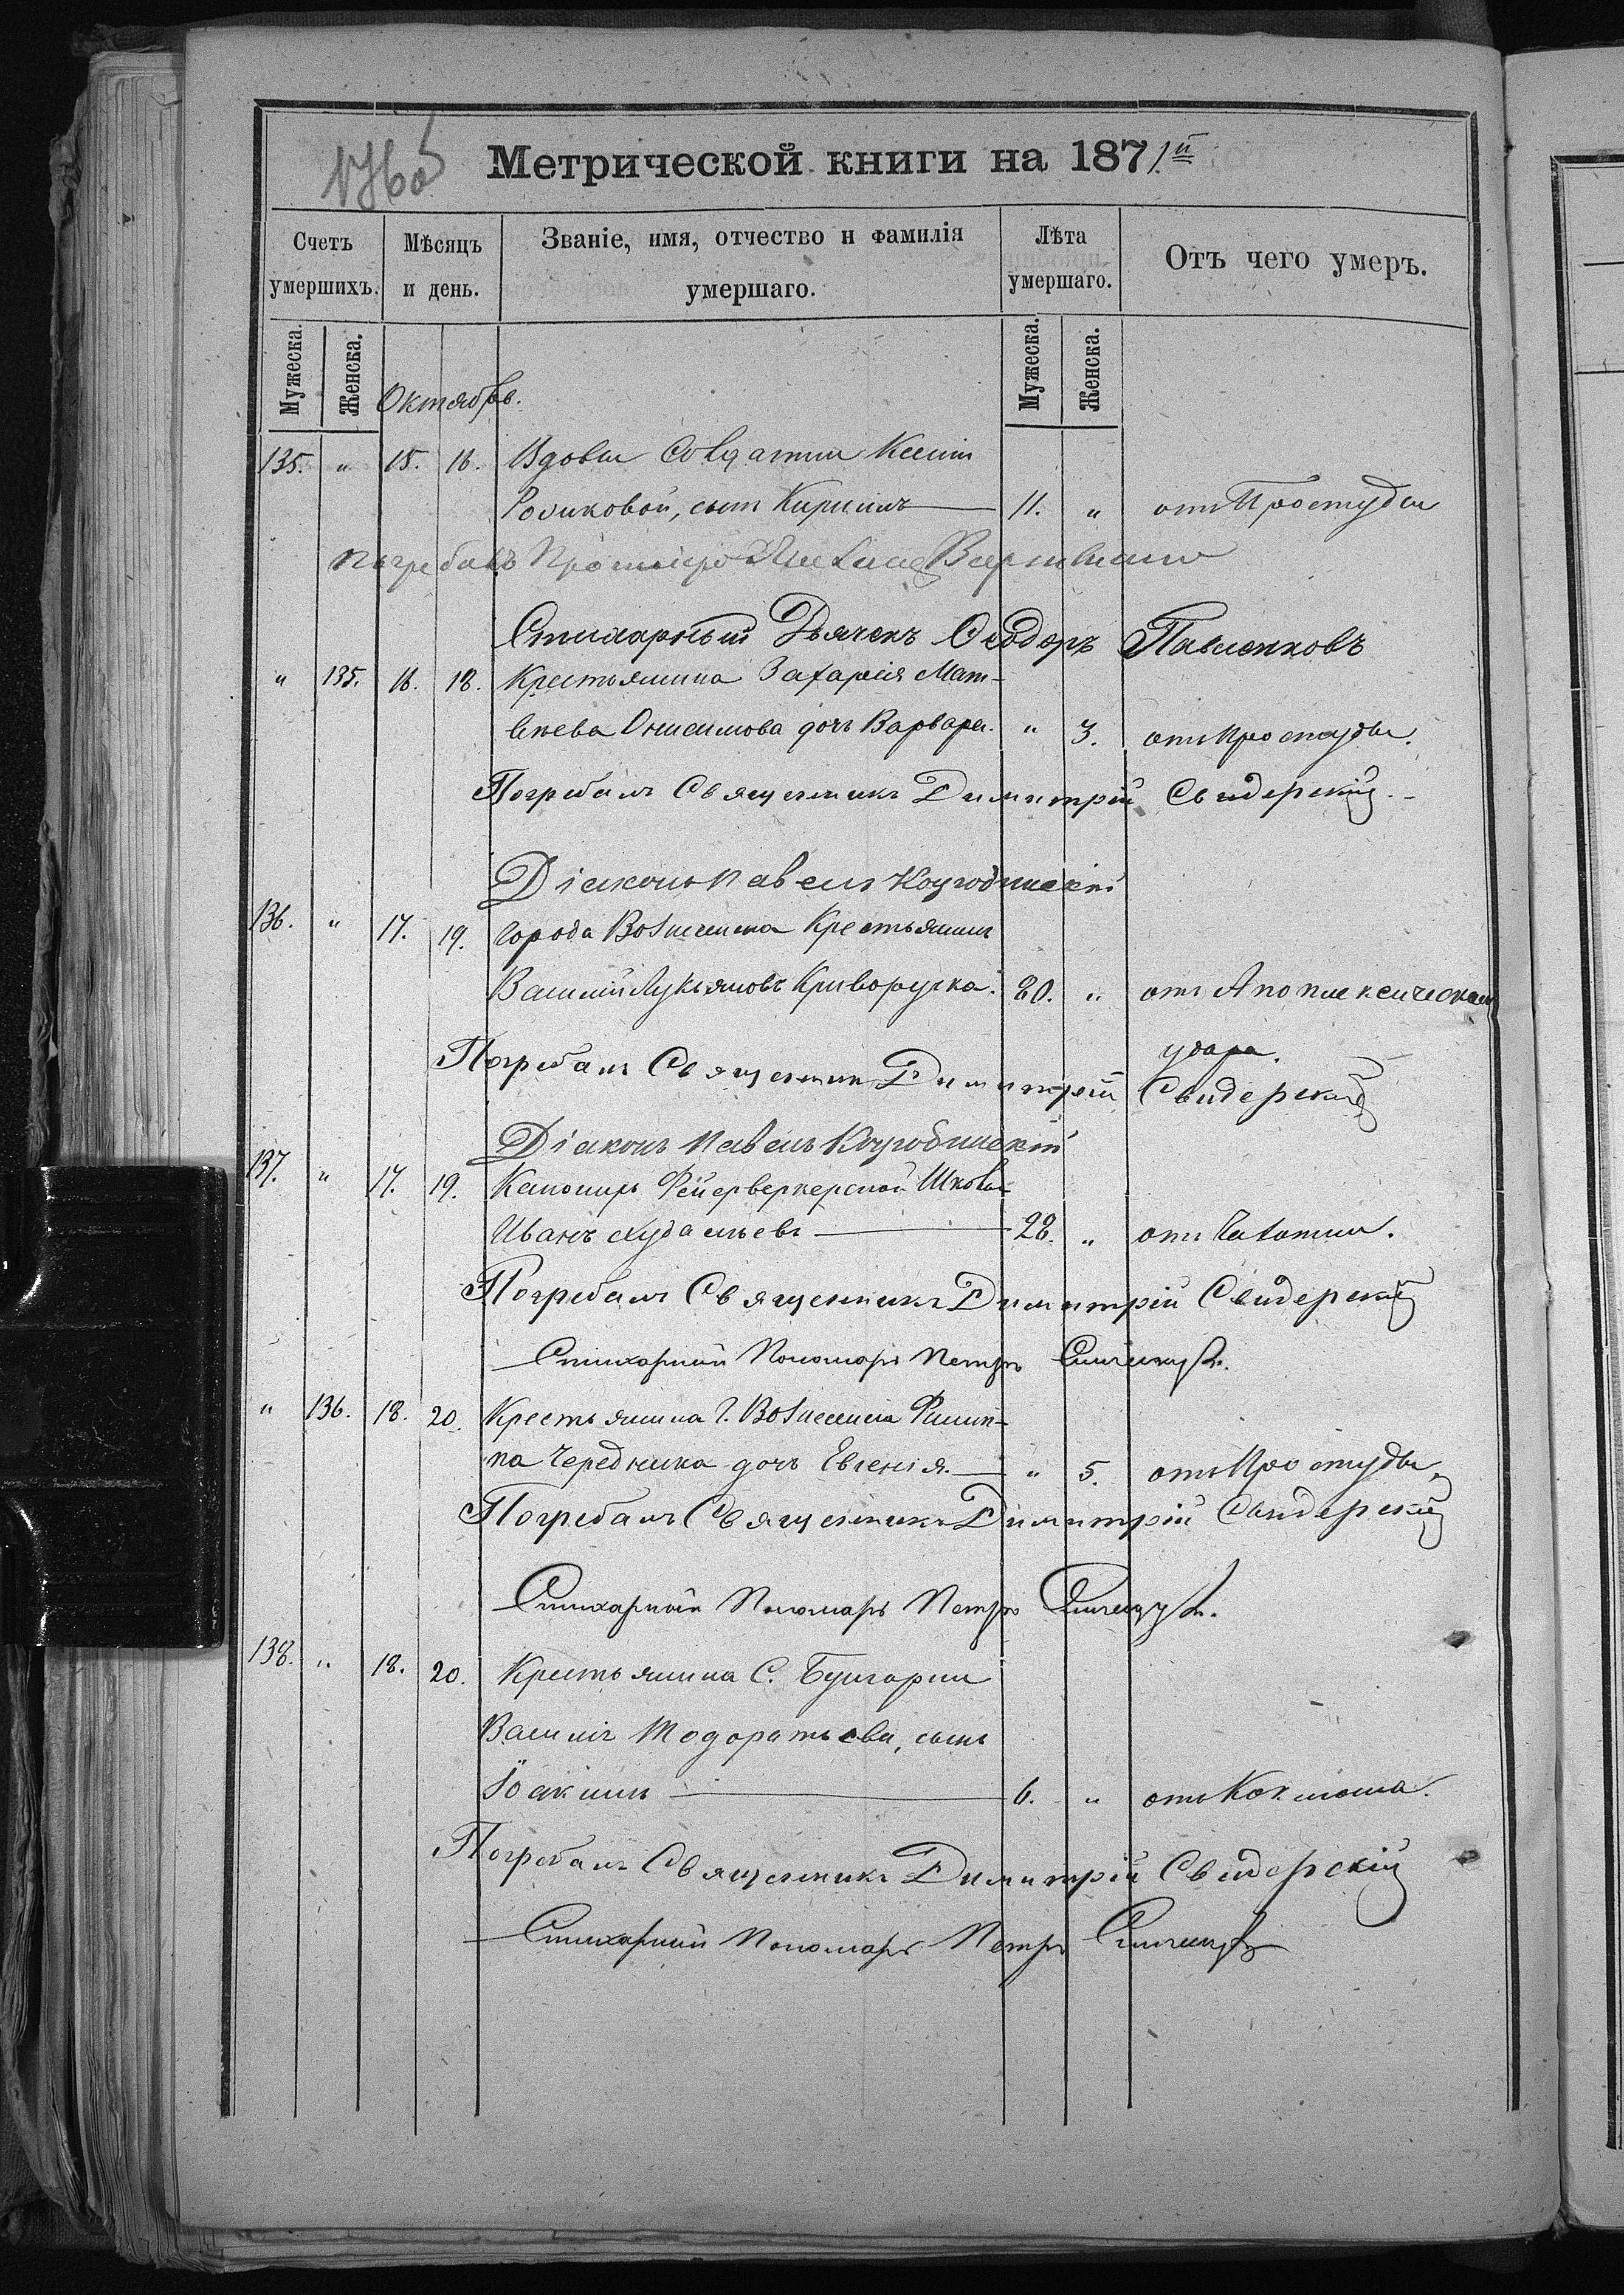 Метрической книги на 1871й
Счетъ умершихъ.
Мѣсяцъ и день.
Званіе, имя, отчество и фамилія умершаго.
Лѣта умершаго.
Отъ чего умеръ.
Мужеска.
Женска.
Мужеска.
Женска.
Октябрь.
135. " 15. 16. Вдовы Солдатки Ксеніи
сынъ Кирилъ 11. " отъ Простуды
Погребалъ Протоіерей
Стихарный Дьячекъ Ѳеодоръ Павленковъ
" 135. 16. 18. Крестьянина Захарія Мат-
вѣева Онисимова дочь Варвара. " 3. отъ простуды.
Погребалъ Священникъ Димитрій Свидерскій
Діаконъ Павелъ
136. " 17. 19. города Вознесенска Крестьянинъ
Василій Лукьяновъ Криворучка. 80. " отъ Апоплексическаго
удара.
Погребалъ Священник Димитрій Свидерскій
Діаконъ Павелъ
137. " 17. 19. Канониръ Фейерверкерской Школы
Иванъ 28. " отъ Чахотки.
Погребалъ Священникъ Димитрій Свидерскій
Стихарный Пономарь Петръ
" 136. 18. 20. Крестьянина г. Вознесенска Филип-
па Чередника дочь Евгенія. " 5. отъ Простуды.
Погребалъ Священникъ Димитрій Свидерскій
Стихарный Пономарь Петръ
138. " 18. 20. Крестьянина С. Булгарки
Василія Тодоратьева, сынъ
Іоакимъ 6. " отъ Коклюша.
Погребалъ Священникъ Димитрій Свидерскій
Стихарный Пономарь Петръ